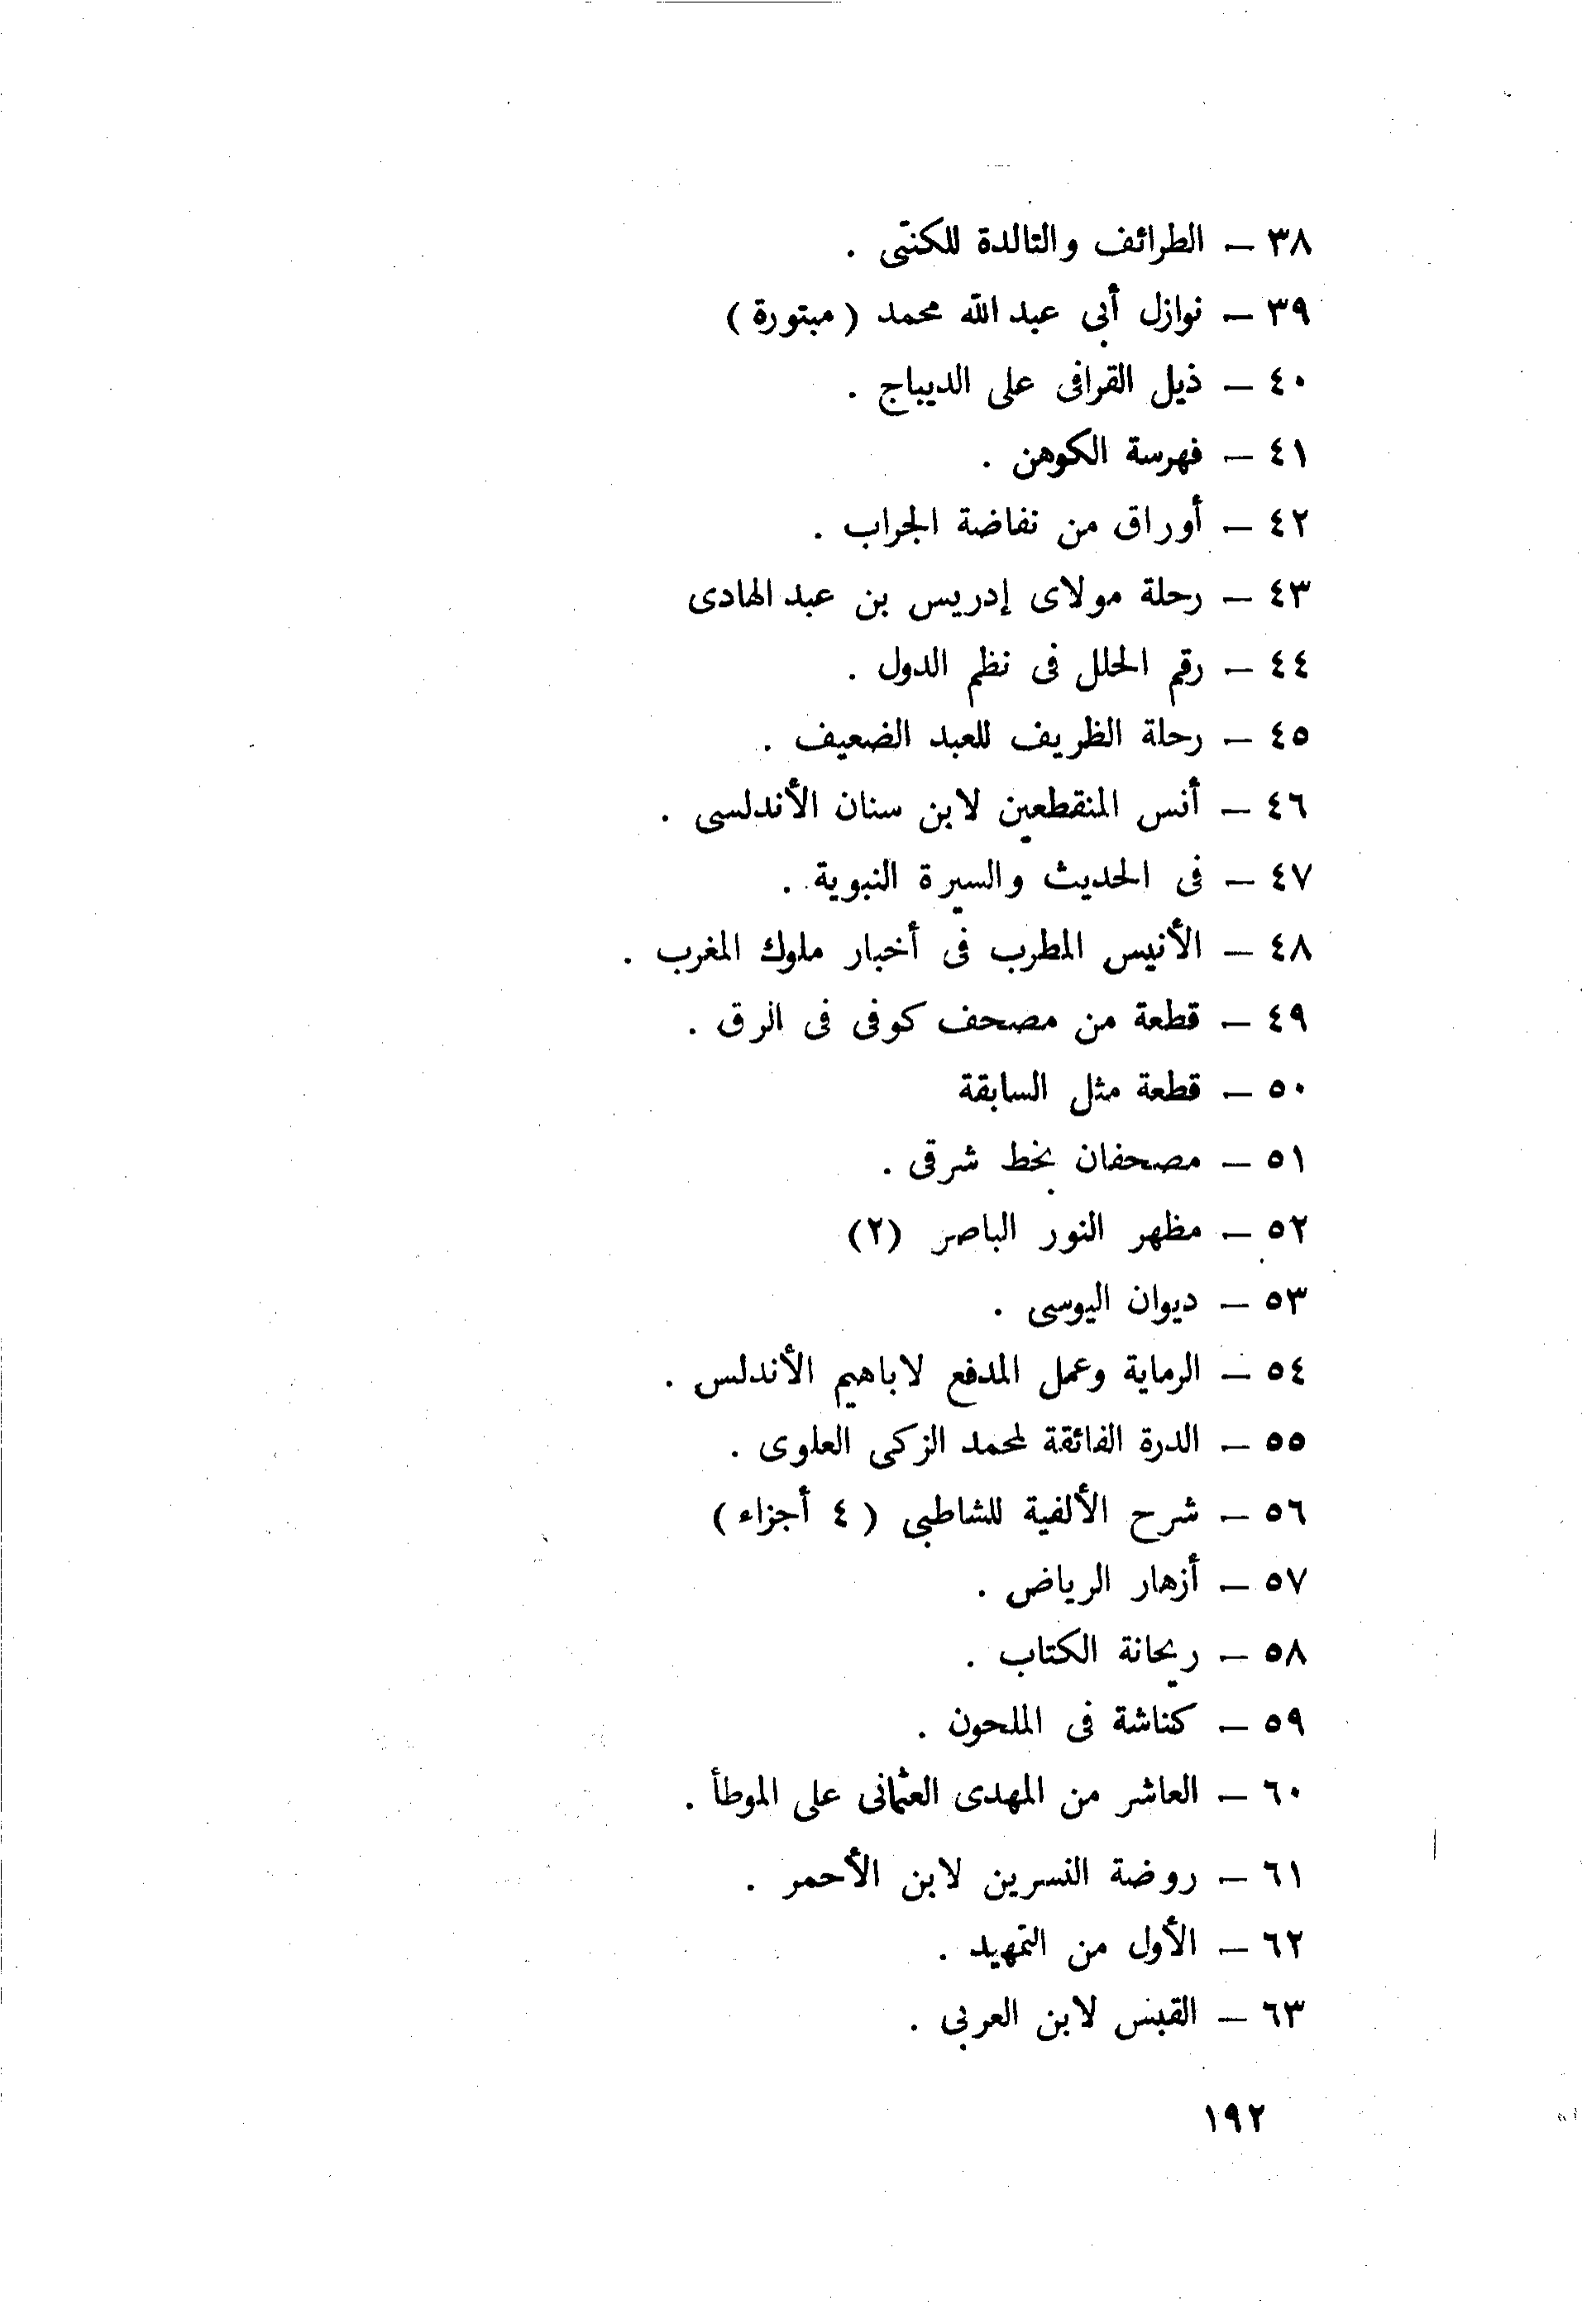 ٣٨ — الطرائف والتالدة للكنتى .
٣٩ — نوازل أبى عبد الله محمد ( مبتورة )
٤٠ — ذيل القرافى على الديباج .
٤١ — فهرسة الكوهن .
٤٢ — أوراق من نفاضة الجراب .
٤٣ — رحلة مولاى إدريس بن عبد الهادى
٤٤ — رقم الحلل فى نظم الدول .
٤٥ — رحلة الظريف للعبد الضعيف .
٤٦ — أنس المنقطعين لابن سنان الأندلسى .
٤٧ — فى الحديث والسيرة النبوية .
٤٨ — الأنيس المطرب فى أخبار ملوك المغرب .
٤٩ — قطعة من مصحف كوفى فى الرق .
٥٠ — قطعة مثل السابقة
٥١ — مصحفان بخط شرقى .
٥٢ — مظهر النور الباصر (٢)
٥٣ — ديوان اليوسى .
٥٤ — الرماية وعمل المدفع لاباهيم الأندلس .
٥٥ — الدرة الفائقة لمحمد الزكى العلوى .
٥٦ — شرح الألفية للشاطبى ( ٤ أجزاء )
٥٧ — أزهار الرياض .
٥٨ — ريحانة الكتاب .
٥٩ — كناشة فى الملحون .
٦٠ — العاشر من المهدى العثمانى على الموطأ .
٦١ — روضة النسرين لابن الأحمر .
٦٢ — الأول من التمهيد .
٦٣ — القبس لابن العربى .
١٩٢